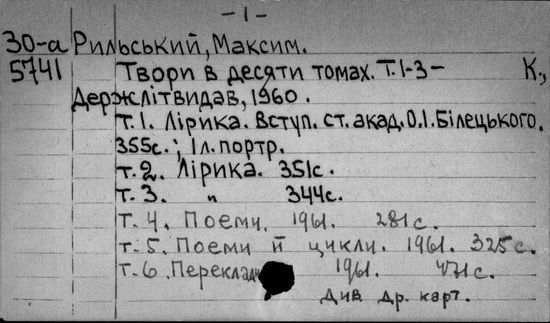 -1-
30-а Рильський, Максим.
5741 Твори в десяти томах. Т.1-3- К.,
Держлітвидав, 1960.
т.1. Лірика. Вступ. ст. акад. О.І. Білецького.
355с.; Іл. портр.
т.2. Лірика. 351с.
т.3. " 344с.
т.4. Поеми. 1961. 281с.
т.5. Поеми й цикли. 1961. 325с.
т.6. Переклади 1961. 471с.
Див др. карт.